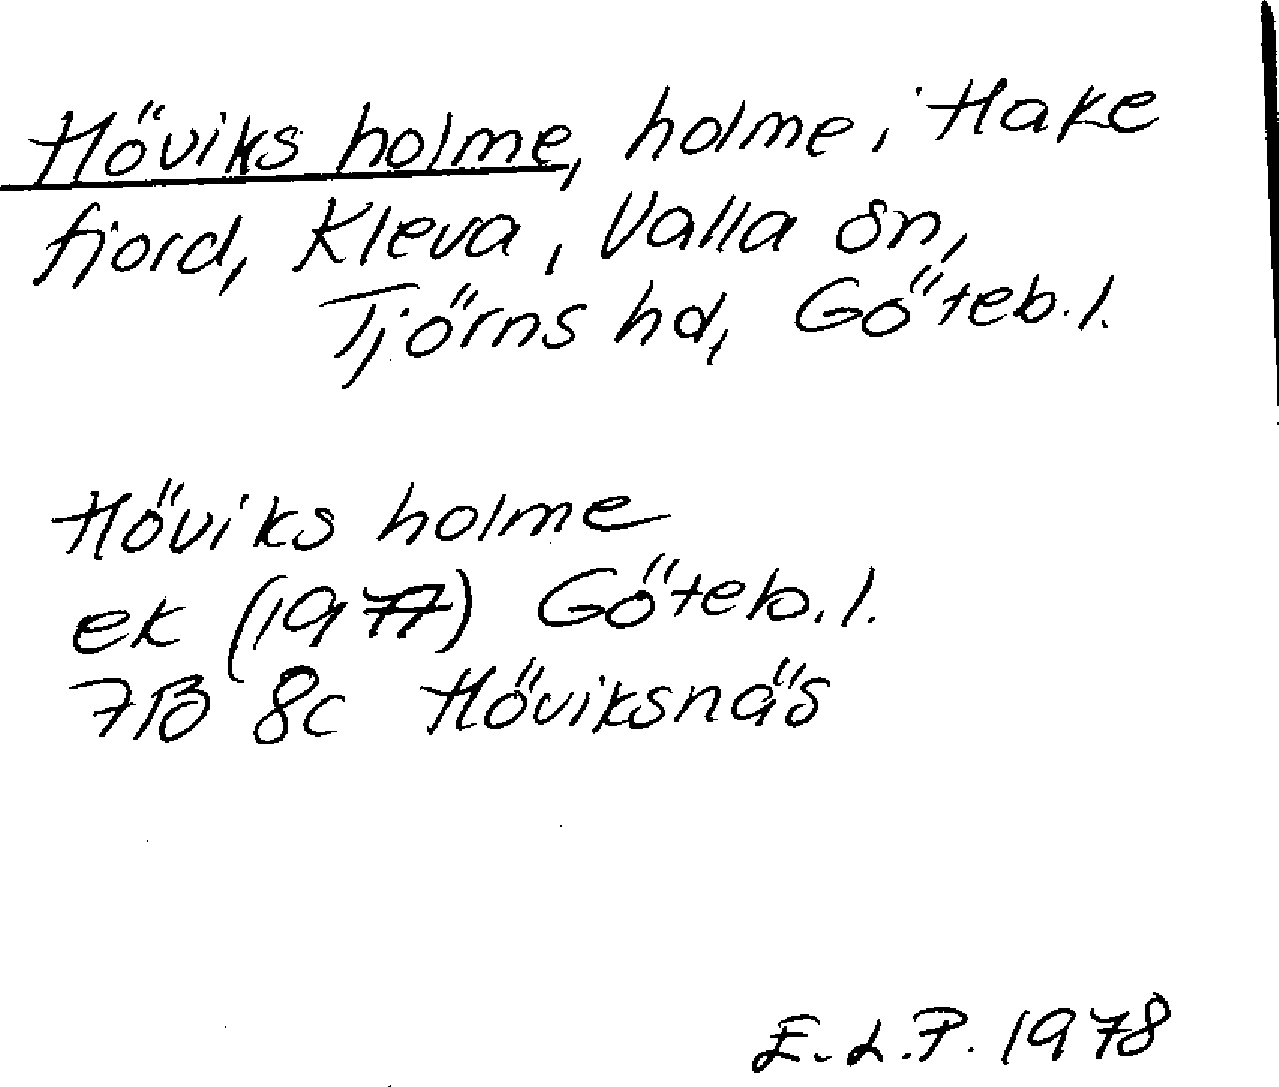 Höviks holme, holme i Hake
fjord, Kleva, Valla sn,
Tjörns hd, Göteb. l.
Höviks holme
ek (1977) Göteb. l.
7B 8c Höviksnäs
E.L.P. 1978